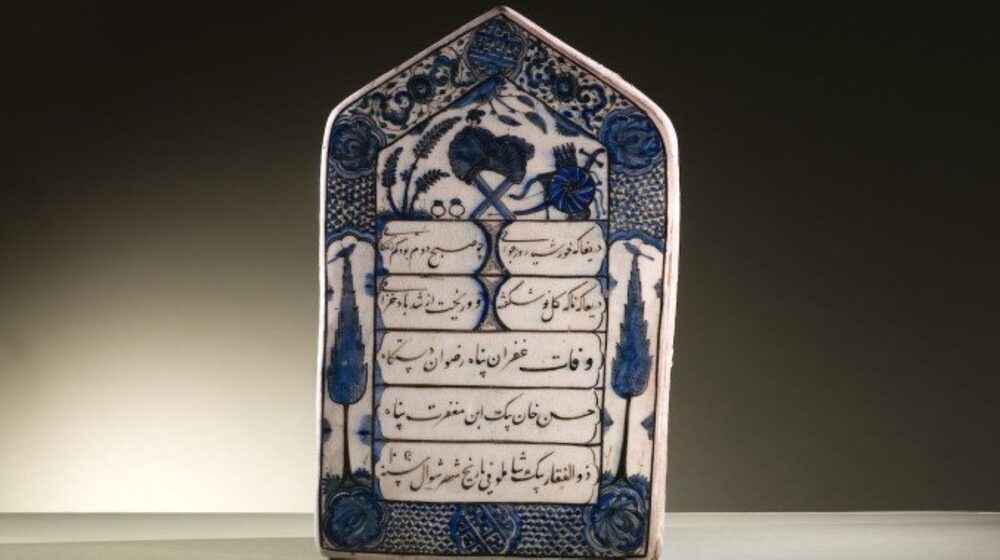 دریغا که خورشید روز جوانی
چو صبح دوم بود کم زندگانی
دریغا که ناگه گل نوشکفته
فرو ریخت از تندباد خزانی
وفات غفران پناه رضوان دستگاه
حسن خان بیک ابن مغفرت پناه
ذوالفقار بیک شاملو فی تاریخ شهر شوال سنه